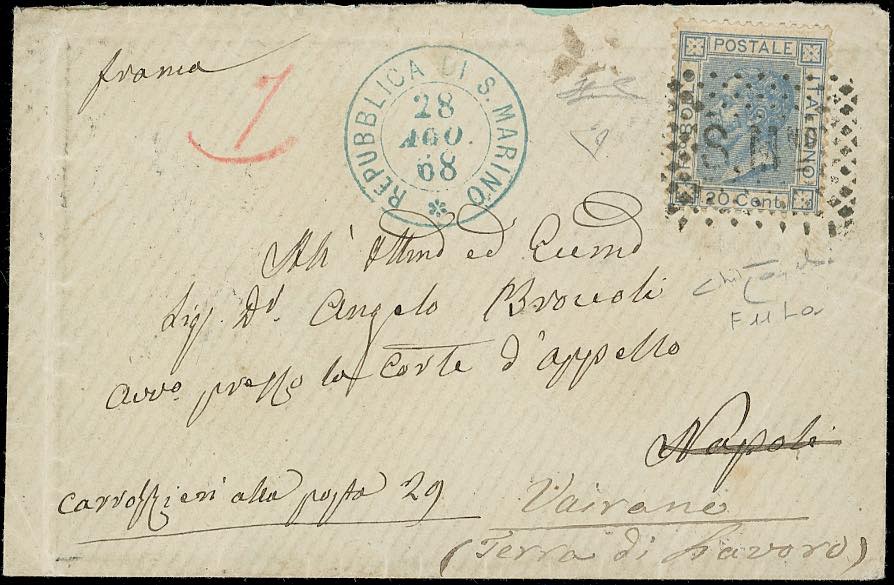 franca
1
REPUBBLICA DI S. MARINO
28
AGO
68
POSTALE
ITALIANO
20 Cent
S. M.
All' Ottmo ed Eccmo
Sig. Dr. Angelo Broccoli
Avvo. presso la Corte d'appello
Napoli
Carrozzieri alla posta 29
Vairano
(Terra di Lavoro)